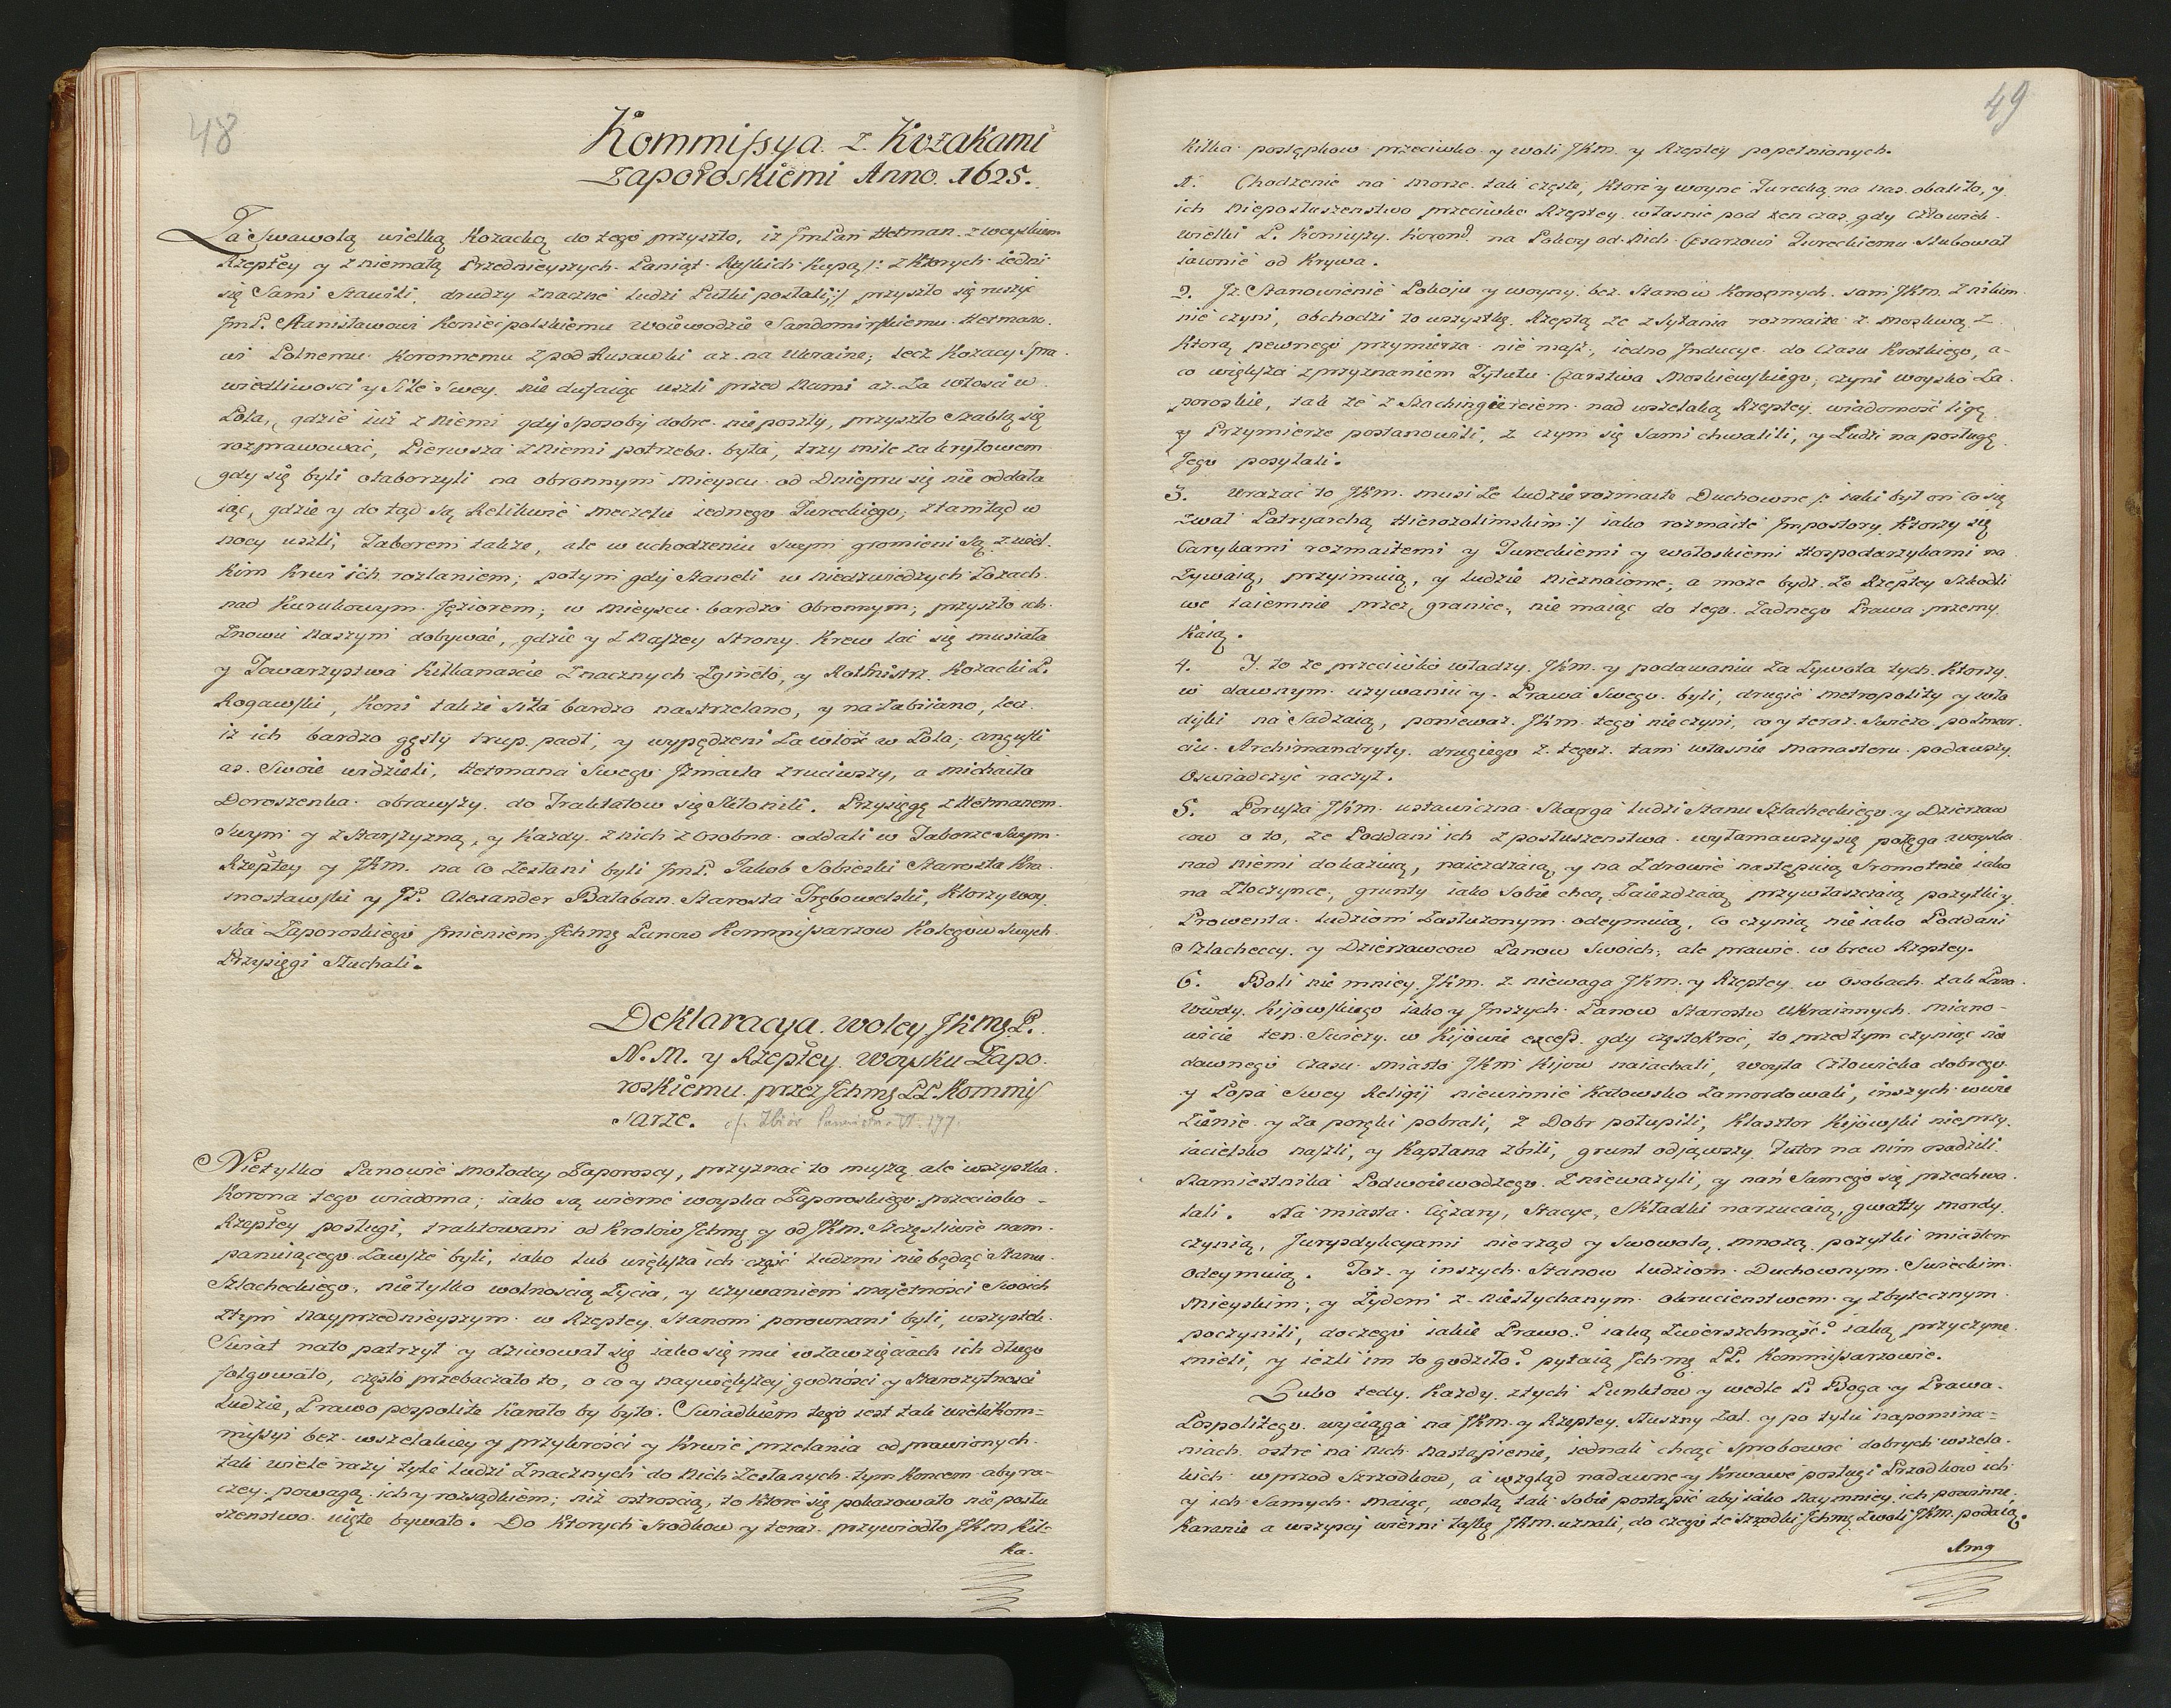 48
Kommissya z Kozakami
Zaporoskiemi Anno. 1625.
Za Swawolą wielką Kozacką do tego przyszło, iż ImPan Hetman z woyskiem
Rzeptey y z niemałą Przednieyszych Paniąt Ruskich kupą /: z Ktorych iedni
się Sami Stawili, drudzy znaczne ludzi Pułki posłali :/ przyszło się ruszyć
ImP. Stanisławowi Koniecpolskiemu Woiewodzie Sandomirskiemu Hetmano
wi Polnemu Koronnemu z pod Rusawki aż na Ukrainę; lecz Kozacy Spra
wiedliwosci y Sile Swey nie dufaiąc uszli przed Nami aż Za włość w
Pola, gdzie iuż z niemi gdy sposoby dobre nie poszły, przyszło Szablą się
rozprawować, Pierwsza z niemi potrzeba była, trzy mile za Kryłowem
gdy się byli otaborzyli na obronnym mieyscu od Dniepru się nie oddala
iąc, gdzie y do tąd są Relikwie meczetu iednego Tureckiego; ztamtąd w
nocy uszli, Taborem także, ale w uchodzeniu swym gromieni są z wiel
kim krwi ich rozlaniem; potym gdy Staneli w niedzwiedzych Łozach
nad Kurukowym Jeziorem, w mieyscu bardzo obronnym, przyszło ich
znowu Naszym dobywać, gdzie y z Naszey Strony krew lać się musiała
y Towarzystwa kilkanaście znacznych zgineło, y Rotmistrz Kozacki P.
Rogawski, Koni także siła bardzo nastrzelano, y nazabijano, lecz
iż ich bardzo gęsty trup padł, y wypędzeni Za włość w Pola, angusti
as Swoie widzieli, Hetmana Swego Izmaiła zruciwszy, a Michaiła
Doroszenka obrawszy do Traktatow się skłonili. Przysięgę z Hetmanem
Swym y z Starszyzną, y Kazdy z nich z osobna oddali w Taborze Swym
Rzeptey y JKm. na co zesłani byli ImP. Jakob Sobieski Starosta Kra
snostawski y JP. Alexander Bałaban Starosta Trębowelski, ktorzy woy
ska Zaporoskiego Imieniem Ichmę Panow Kommissarzow Kolegow Swych
Przysięgi Słuchali.
Deklaracya woley JKmę P.
N. M. y Rzeptey woysku Zapo
roskiemu przez Ichmę PP. Kommis
sarze. cf. Zbior Pamiętn. VI. 177.
Nietylko Panowie mołodcy Zaporoscy, przyznać to muszą ale wszystka
Korona tego wiadoma; iako są wierne woyska Zaporoskiego przeciwko
Rzeptey posługi, traktowani od Krolow Ichmę y od JKm. Szczęśliwie nam
panuiącego zawsze byli, iako lub większa ich część ludzmi nie będąc Stanu
Szlacheckiego, nietylko wolnoscią Zycia, y uzywaniem maiętnosci Swoich
z tym Nayprzednieyszym w Rzeptey Stanom porownani byli, wszystek
Swiat nato patrzył y dziwował się iako się mu w zawzięciach ich długo
folgowało, często przebaczało to, o co y naywiększey godnosci y Starozytnosci
ludzie, Prawo pospolite karało by było. Swiadkiem tego iest tak wiele Kom=
missyi bez wszelakiey y przykrosci y krwie przelania odprawionych
tak wiele razy tyle ludzi znacznych do nich zesłanych tym koncem aby ra-
czey powagą ich y rozsądkiem; niż ostroscią, to ktore się pokazowało nie posłu
szenstwo uięte bywało. Do ktorych srodkow y teraz przywiodło JKm kil-
ka.
49
kilka postępkow przeciwko y woli JKm. y Rzeptey popełnionych.
1. Chodzenie na morze tak częste, ktore y woyne Turecką na nas obaliło, y
ich Nieposłuszenstwo przeciwko Rzeptey własnie pod ten czas gdy człowiek
wielki P. Koniuszy Korond na Pokoy od nich Cesarzowi Tureckiemu Slubował
iawnie od krywa.
2. Iz Stanowienie Pokoju y woyny bez Stanow Koronnych sam JKm. z nikim
nie czyni, obchodzi to wszystkę Rzeptą ze zsyłania rozmaite z Moskwą z
ktorą pewnego przymierza nie masz, iedno Inducye do czasu krotkiego, a-
co większa z przyznaniem Tytułu Carstwa Moskiewskiego; czyni woysko Za
poroskie, tak że z Szachingiereiem nad wszelaką Rzeptey wiadomość ligę
y Przymierze postanowili, z czym się sami chwalili, y Ludzi na posługę
Jego posyłali.
3. Urazać to JKm. musi że ludzie rozmaite Duchowne /: iaki był on co się
zwał Patryarchą Hierozolimskim :/ iako rozmaite Impostory ktorzy się
Carykami rozmaitemi y Tureckiemi y wołoskiemi Hospodarzykami na
zywaią, przyimuią, y ludzie nieznaiome, a może bydz że Rzeptey Szkodli
we taiemnie przez granice, nie maiąc do tego żadnego Prawa przemy
kaią.
4. Y to że przeciwko władzy JKm. y podawaniu za zywota tych ktorzy
w dawnym uzywaniu y Prawa Swego byli, drugie metropolity y wła
dyki na Sadzaią, ponieważ JKm. tego nie czyni, co y teraz swiezo po zmar
ciu Archimandryty drugiego z tegoz tam własnie Monasteru podawszy
oswiadczyć raczył.
5. Porusza JKm. ustawiczna Skarga ludzi Stanu Szlacheckiego y Dzierzaw
cow o to, ze Poddani ich z posłuszenstwa wyłamawszy się potęga woyska
nad niemi dokazuią, naiezdzaią y na zdrowie następuią Sromotnie iako
na Złoczynce, grunty iako Sobie chcą zaiezdzaią przywłaszczaią pozytki y
Prowenta ludziom zasłuzonym odeymuią, co czynią nie iako Poddani
Szlacheccy y Dzierzawcow Panow Swoich, ale prawie w brew Rzeptey.
6. Boli nie mniey JKm. z niewaga JKm. y Rzeptey w Osobach tak Pana
Wwdy Kijowskiego iako y Inszych Panow Starostw Ukrainnych miano-
wicie ten Swiezy w Kijowie excess gdy częstokroć, to przedtym czyniąc nie
dawnego czasu miasto JKm Kijow naiachali, woyta człowieka dobrego
y Popa Swey Religij niewinnie katowsko zamordowali, inszych wwię
zienie y za poręki pobrali, z Dobr połupili, Klasztor Kijowski nieprzy
iacielsko naszli, y Kapłana zbili, grunt odjąwszy Futor na nim osadzili
Namiestnika Podwoiewodzego zniewazyli, y nań Samego się przechwa
lali. Na miasta Cięzary, Stacye, Składki narzucaią, gwałty mordy
czynią, Jurysdykcyami nierząd y Swowolą mnożą pozytki miastom
odeymuią. Toz y inszych Stanow ludziom Duchownym Swieckim
Mieyskim, y Żydom z niesłychanym okrucienstwem y zbytecznym
poczynili, doczego iakie Prawo? iaką Zwierzchność? iaką przyczynę
mieli, y iezli im to godziło? pytaią Ichmę PP. Kommissarzowie.
Lubo tedy Kazdy z tych Punktow y wedle P. Boga y Prawa
Pospolitego wyciąga na JKm. y Rzeptey słuszny zal y po tylu napomina=
niach ostre na nich nastąpienie, iednak chcąc sprobować dobrych wszela
kich wprzod Szrzodkow, a wzgląd nadawne y krwawe posługi Przodkow ich
y ich Samych maiąc, wolą tak Sobie postąpić aby iako Naymniey ich powinne
karanie a wszyscy wierni łaskę JKm. uznali, do czego te srzodki Ichmę z woli JKm. podaią.
Amg